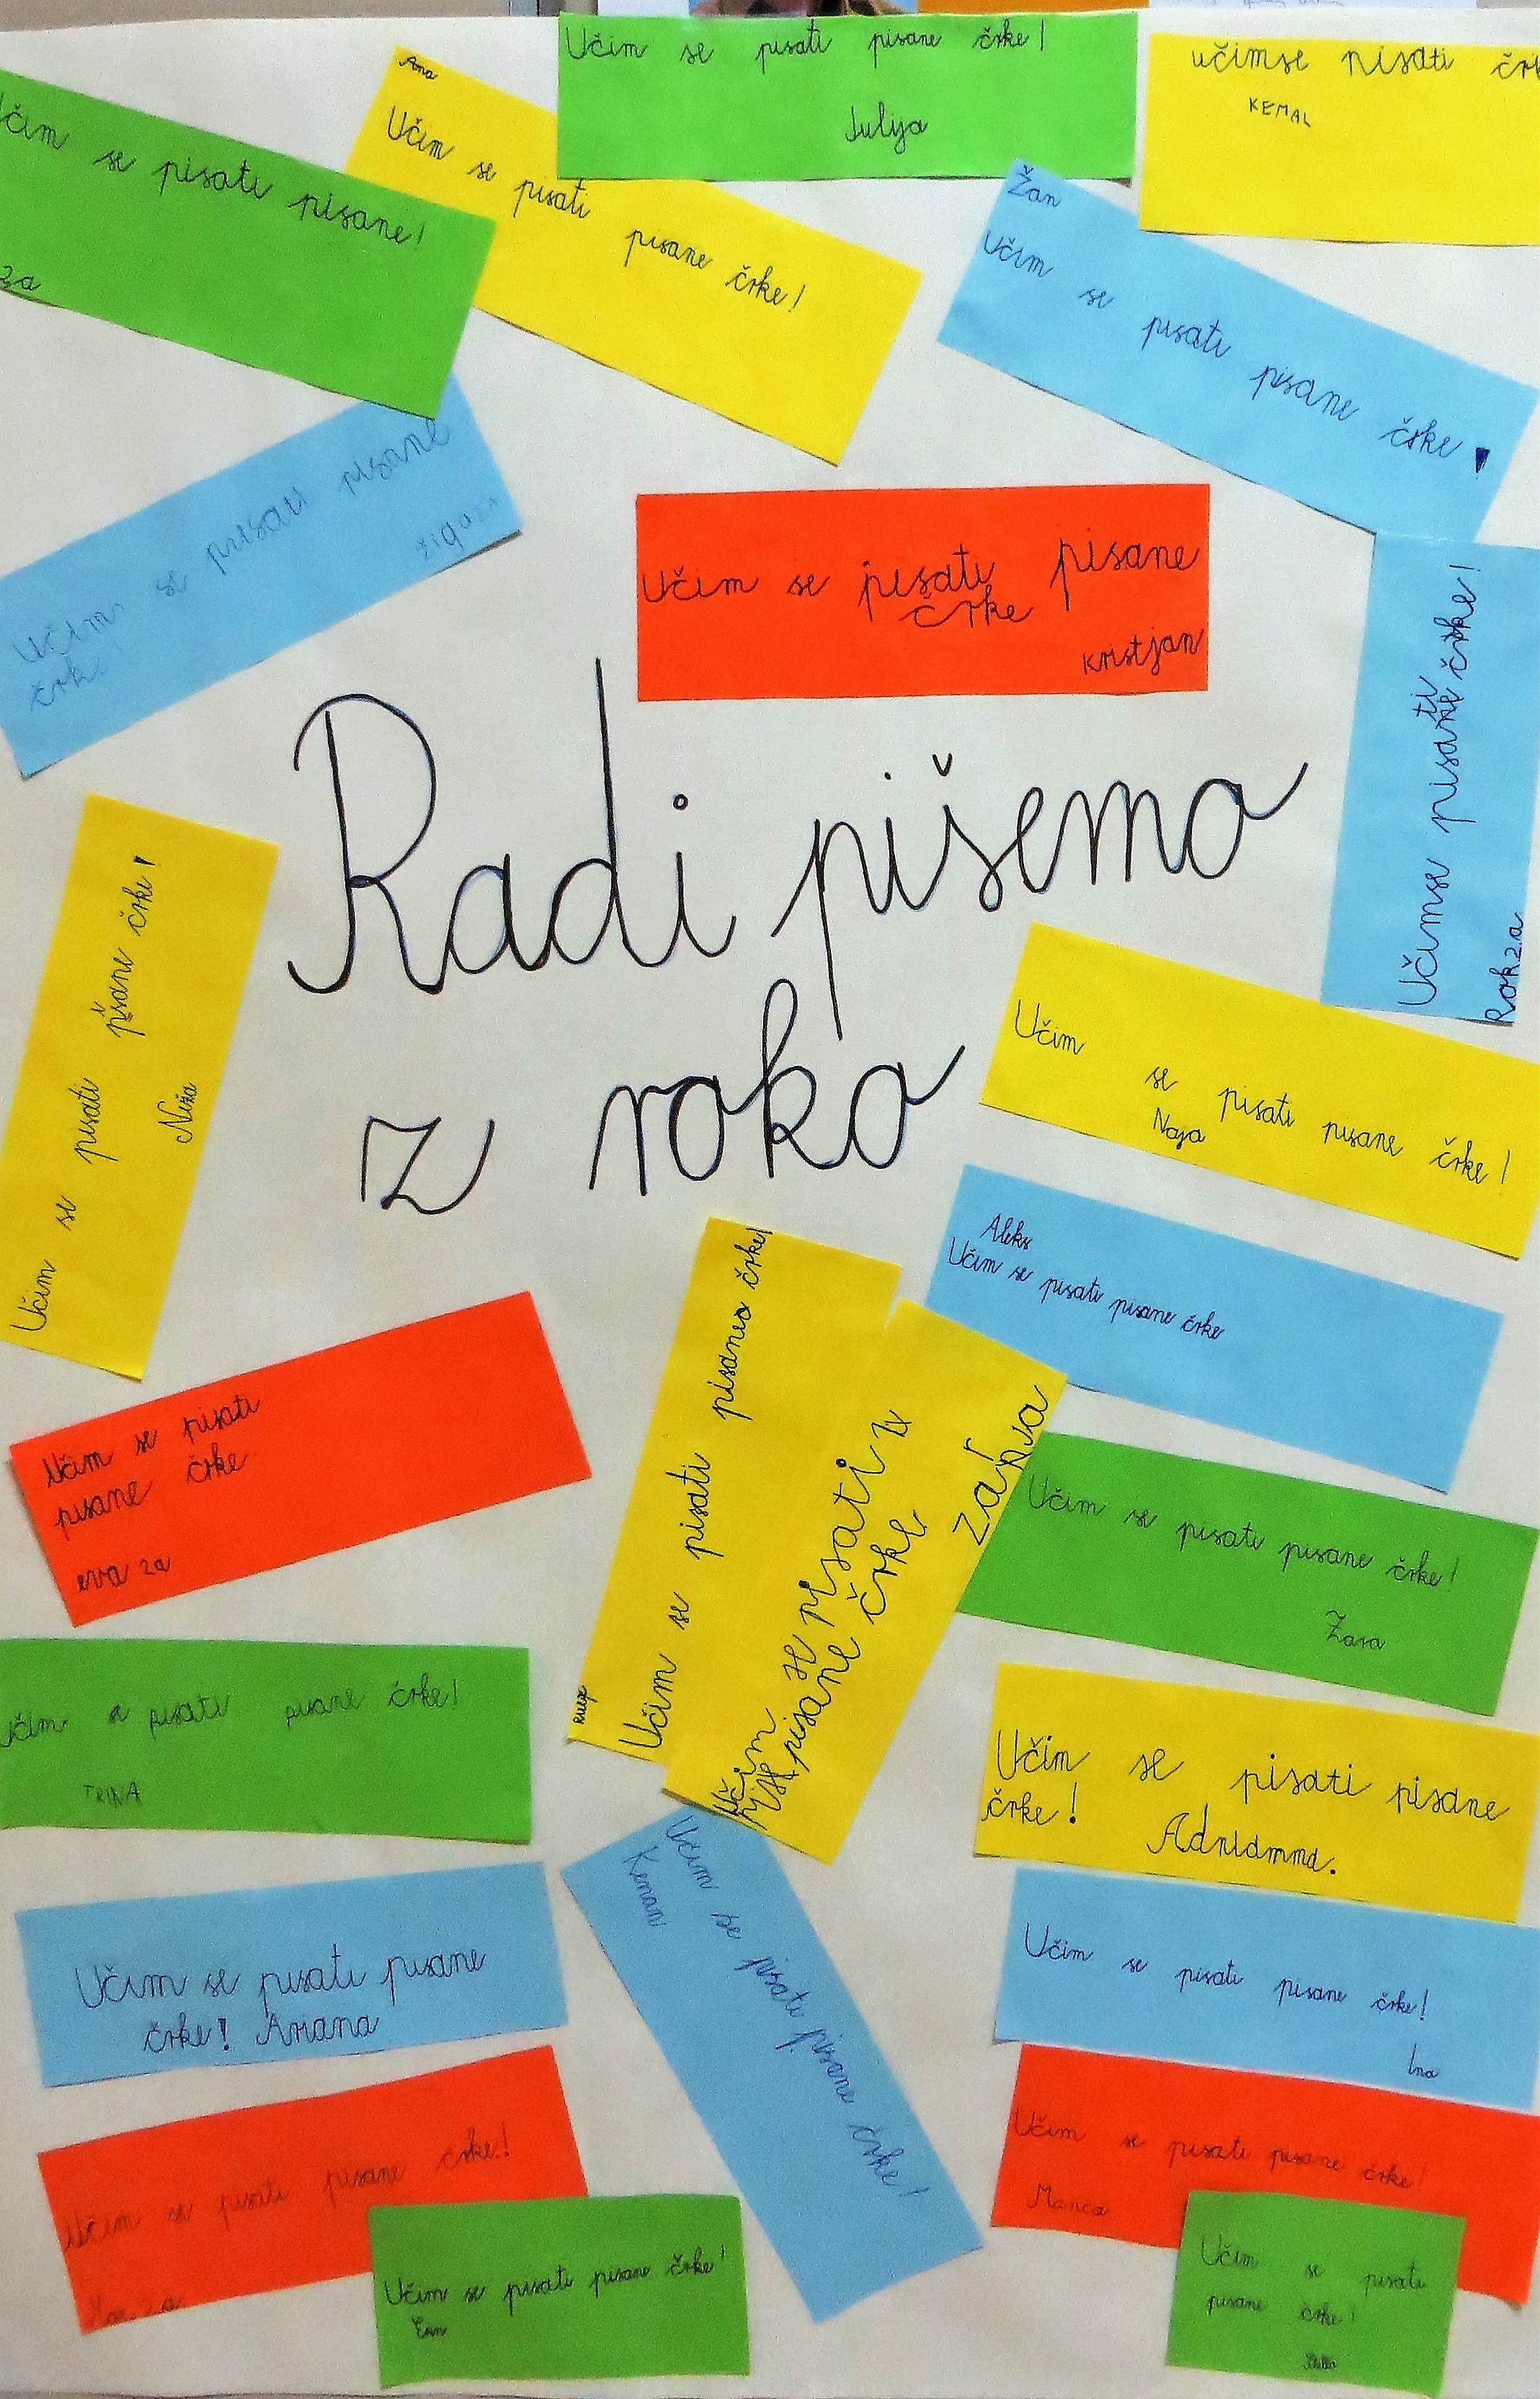 Učim se pisati pisane črke!
Julija
učimse pisati
KEMAL
Ana
Učim se pisati
pisane črke!
se pisati pisane!
Žan
Učim se pisati pisane črke!
Učim se pisati pisane
črke!
Učim se pisati pisane
črke
Kristjan
Učimse pisati
pisane črke!
Rok 2.a
Radi pišemo
z roko
Učim se pisati pisane črke!
Neža
Učim se pisati pisane črke!
Naja
Aleks
Učim se pisati pisane črke
Učim se pisati pisane črke!
Učim se pisati
pisane črke
Učim se pisati
pisane črke
eva 2a
Učim se pisati pisane črke!
Zara
se pisati pisane črke!
TRINA
Učim se pisati pisane
črke!
Učim se pisati pisane
črke! Ariana
Učim se pisati pisane črke!
Kenan
Učim se pisati pisane črke!
Ina
Učim se pisati pisane črke!
Učim se pisati pisane črke!
Manca
Učim se pisati pisane črke!
Učim se pisati
pisane črke!